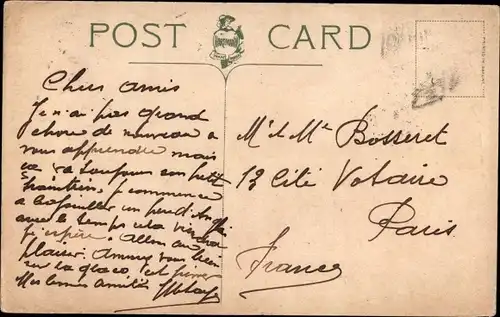 POST CARD
Chers amis
Je n'ai pas grand
chose de nouveau a
vous apprendre mais
ca a toujours son petit
train train, je commence
a bafouiller un peu d'Angl
avec le temps cela viendra
j'espère. Allons au
plaisir. Amusez vous bien
sur la glace, et
Mes bonnes amitiés
Mr et Me Bosseret
12 Cité Voltaire
Paris
France